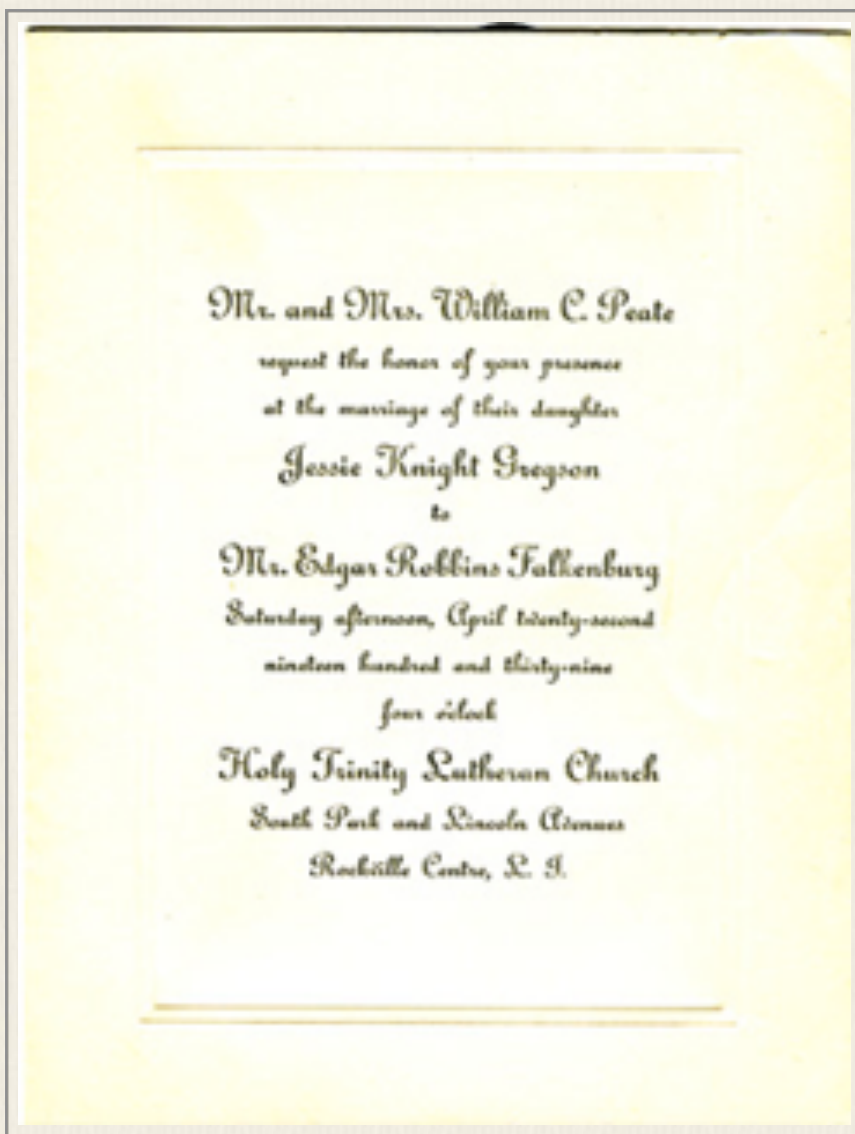 Mr. and Mrs. William C. Peate
request the honor of your presence
at the marriage of their daughter
Jessie Knight Gregson
to
Mr. Edgar Robbins Falkenburg
Saturday afternoon, April twenty-second
nineteen hundred and thirty-nine
four o'clock
Holy Trinity Lutheran Church
South Park and Lincoln Avenues
Rockville Centre, L. I.